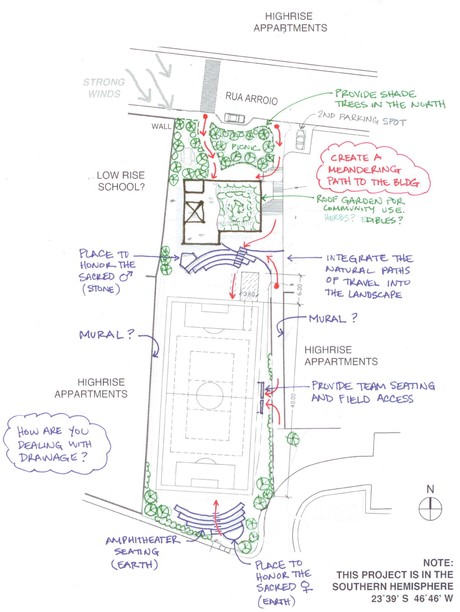 HIGHRISE
APPARTMENTS
STRONG
WINDS
RUA ARROIO
PROVIDE SHADE
TREES IN THE NORTH
2ND PARKING SPOT
WALL
PICNIC
CREATE A
MEANDERING
PATH TO THE BLDG
LOW RISE
SCHOOL?
ROOF GARDEN FOR
COMMUNITY USE.
HERBS? EDIBLES?
PLACE TO
HONOR THE
SACRED ♂
(STONE)
INTEGRATE THE
NATURAL PATHS
OF TRAVEL INTO
THE LANDSCAPE
6.00
MURAL?
MURAL?
HIGHRISE
APPARTMENTS
HIGHRISE
APPARTMENTS
PROVIDE TEAM SEATING
AND FIELD ACCESS
40.00
HOW ARE YOU
DEALING WITH
DRAINAGE?
N
AMPHITHEATER
SEATING
(EARTH)
PLACE TO
HONOR THE
SACRED ♀
(EARTH)
NOTE:
THIS PROJECT IS IN THE
SOUTHERN HEMISPHERE
23°39' S 46°46' W